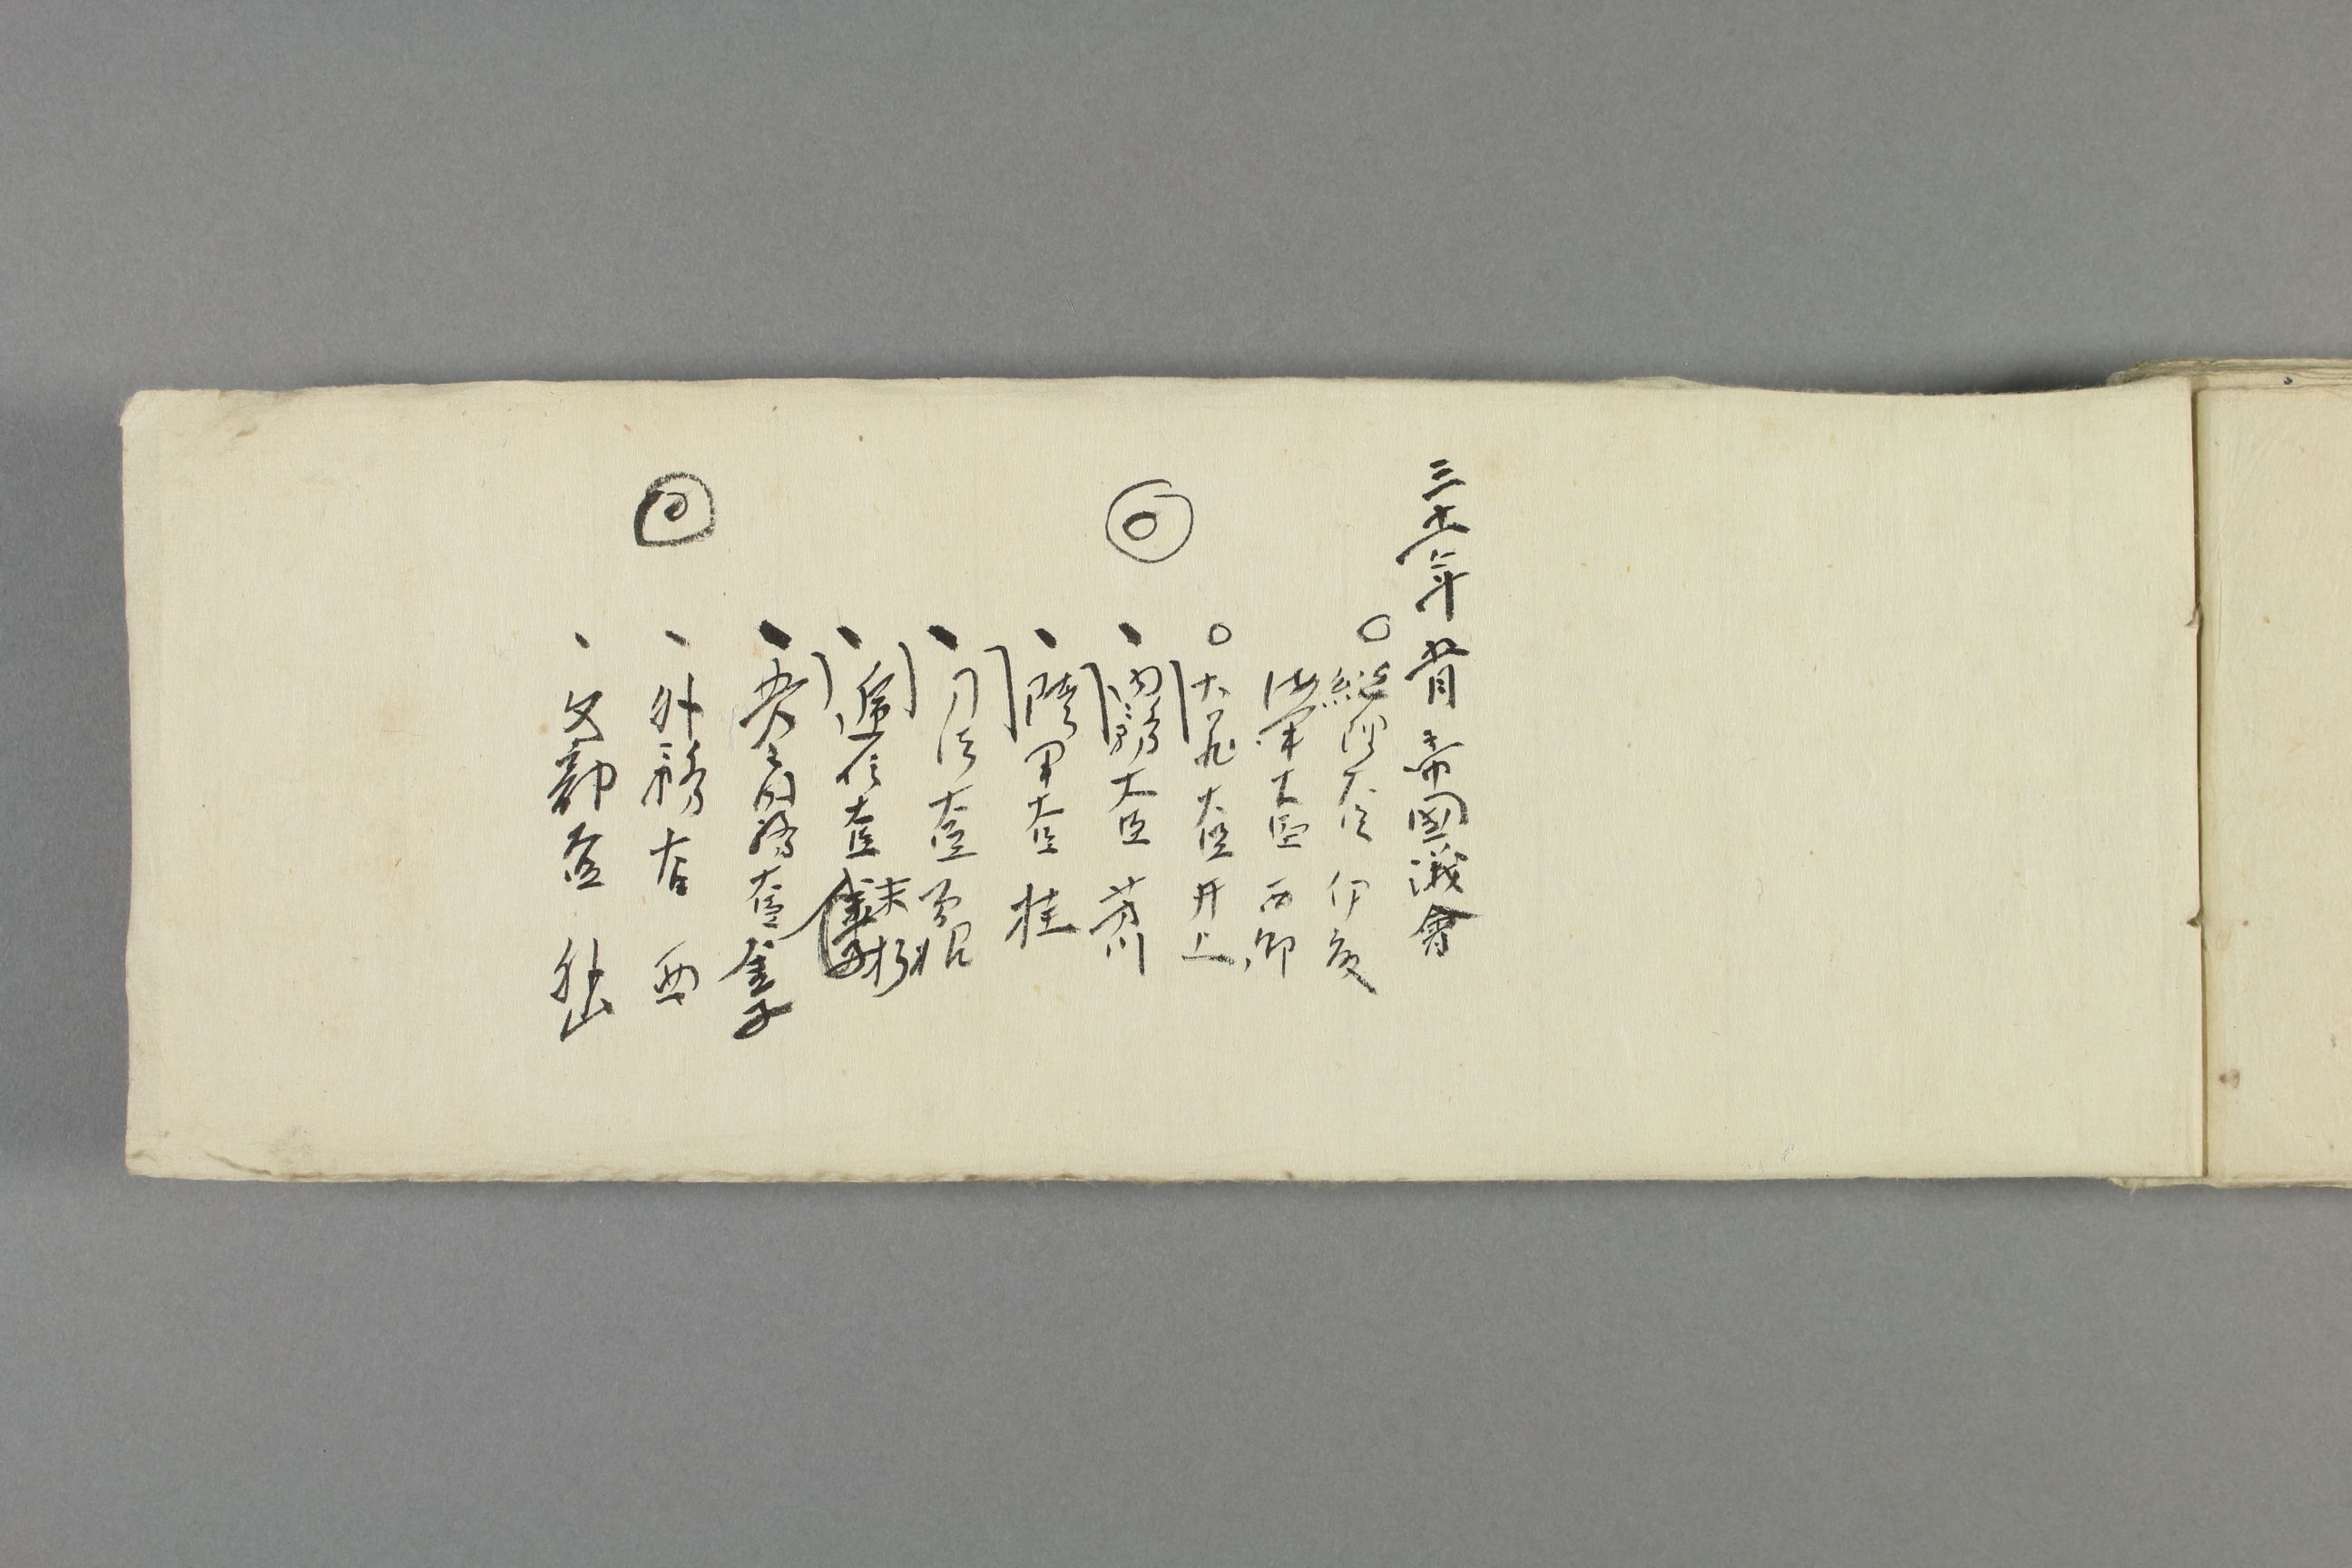 三十一年五月帝國議會
○總理大臣 伊藤
海軍大臣 西郷
○大蔵大臣 井上
内務大臣 芳川
陸軍大臣 桂
司法大臣 曽祢
逓信大臣 末松
農商務大臣 金子
外務大臣 西
文部大臣 外山